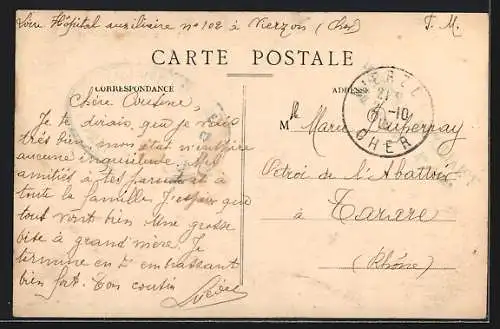 Hôpital auxiliaire n° 102 à Vierzon (Cher) F. M.
CARTE POSTALE
CORRESPONDANCE
ADRESSE
Chère Cousine,
Je te dirais, que je vais
très bien, mon état n'inspire
aucune inquiétude. Mes
amitiés à tes parents et à
toute la famille. J'espère que
tout vont bien Une grosse
bise à grand'mère. Je
termine en t' embrassant
bien fort. Ton cousin
Mlle Marie
Octroi de l'Abattoir
à
Tarare
(Rhône)
CHER